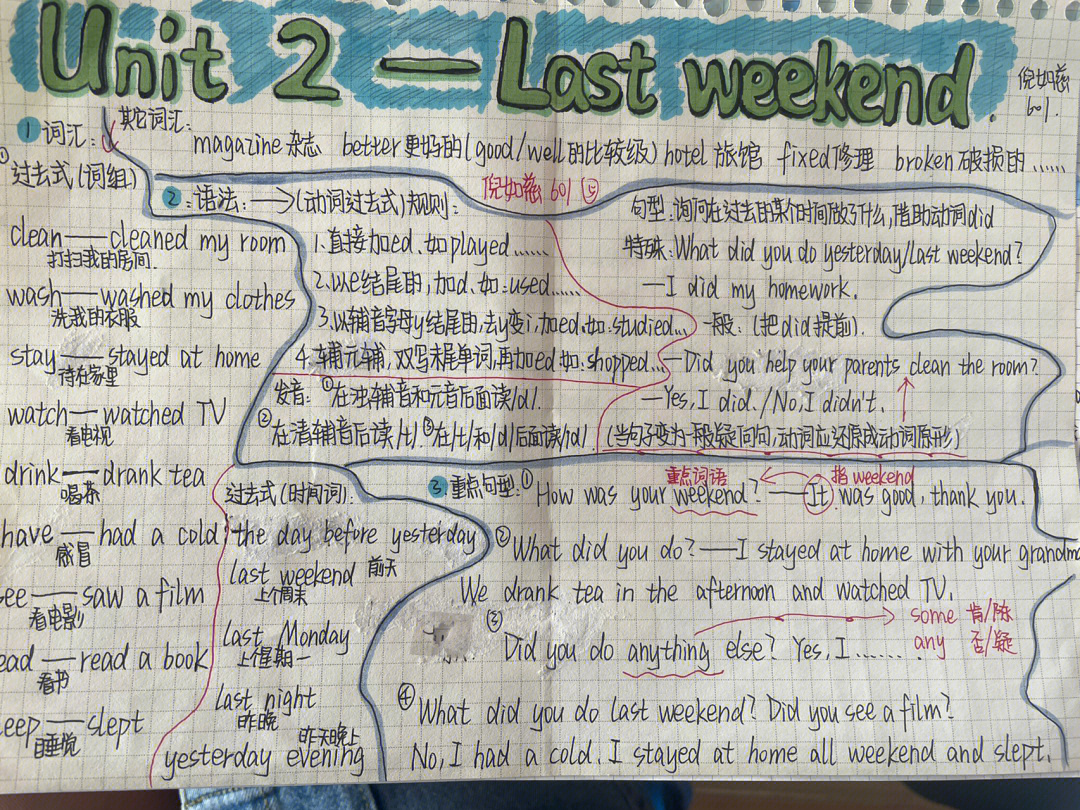 Unit 2 — Last weekend.
倪如慈
601.
1 词汇:
其它词汇:
magazine 杂志 better 更好的(good/well的比较级) hotel 旅馆 fixed修理 broken 破损的……
① 过去式(词组)
clean——cleaned my room
打扫我的房间.
wash——washed my clothes
洗我的衣服
stay——stayed at home
待在家里
watch—watched TV
看电视
drink—drank tea
喝茶
have—had a cold
感冒
ee——saw a film
看电影
ead—read a book
看书
eep—slept
睡觉
过去式(时间词):
the day before yesterday
前天
last weekend
上个周末
Last Monday
上星期一
Last night
昨晚
昨天晚上
yesterday evening
2:语法:——>(动词过去式)规则:
倪如慈 601 ⑤
1.直接加ed.如played……
2.以e结尾的,加d.如:used……
3.以辅音字母y结尾的,去y变i,加ed.如:studied…
4.辅元辅,双写末尾单词,再加ed如:shopped…
发音:①在浊辅音和元音后面读/d/.
②在清辅音后读/t/.③在/t/和/d/后面读/id/.
句型:询问在过去的某个时间做了什么,借助动词did
特殊:What did you do yesterday/Last weekend?
—I did my homework.
一般:(把did提前).
—Did you help your parents clean the room?
—Yes,I did./No,I didn't.
(当句子变为一般疑问句,动词应还原成动词原形)
3 重点句型:① How was your weekend?——It was good, thank you.
重点词语
指 weekend
②What did you do?——I stayed at home with your grandma
We drank tea in the afternoon and watched TV.
③ Did you do anything else? Yes, I …….
some 肯/陈
any 否/疑
④What did you do last weekend? Did you see a film?
No, I had a cold. I stayed at home all weekend and slept.